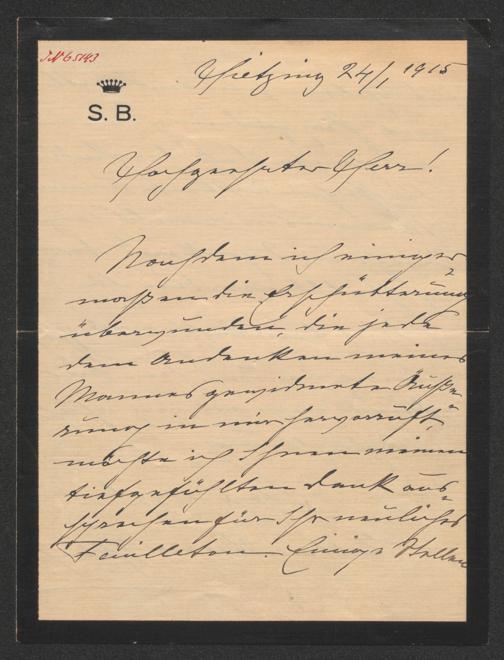 JN 65143
S. B.
Hietzing 24/1 1915
Hochgeehrter Herr!
Nachdem ich einiger-
maßen die Erschütterung
überwunden, die jede
dem Andenken meines
Mannes gewidmete Äuße-
rung in mir hervorruft,
möchte ich Ihnen meinen
tiefgefühlten Dank aus-
sprechen für Ihr neuliches
Feuilleton. Einige Stellen